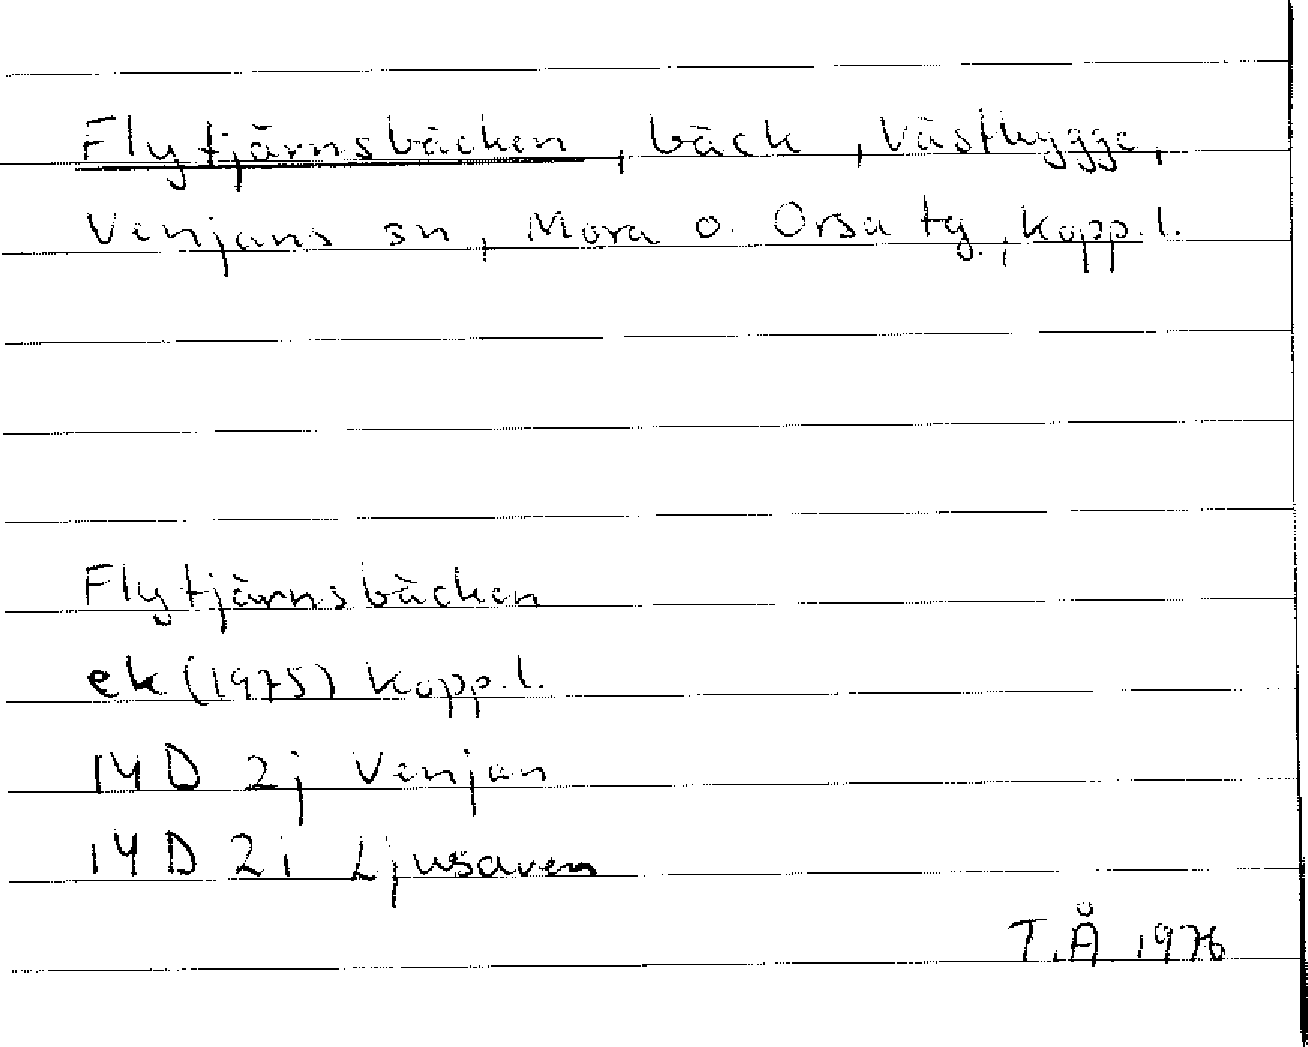 Flytjärnsbäcken, bäck, Västbygge,
Venjans sn, Mora o. Orsa tg, Kopp. l.
Flytjärnsbäcken
ek (1975) Kopp. l.
14 D 2j Venjan
14 D 2i Ljusaven
T.Å. 1976